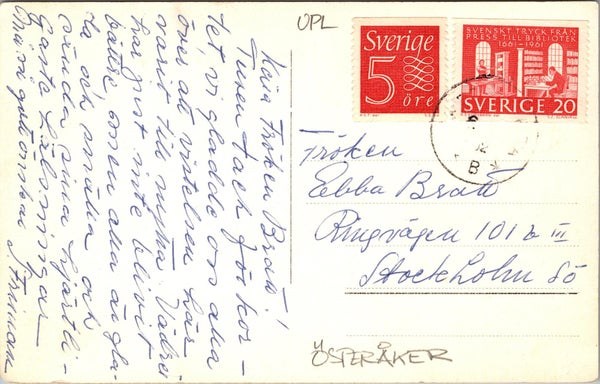 UPL
Sverige
5
öre
SVENSKT TRYCK FRÅN
PRESS TILL BIBLIOTEK
1661-1961
SVERIGE 20
Kära Fröken Bratt!
Tusen tack för kor-
tet, vi gladde oss alla
över att vistelsen här
varit till nytta. Vädret
har just inte blivit
bättre, men alla är gla-
da och snälla och
sända sina hjärtli-
gaste hälsningar
Fröken
Ebba Bratt
Ringvägen 101 b III
Stockholm Sö
ÖSTERÅKER